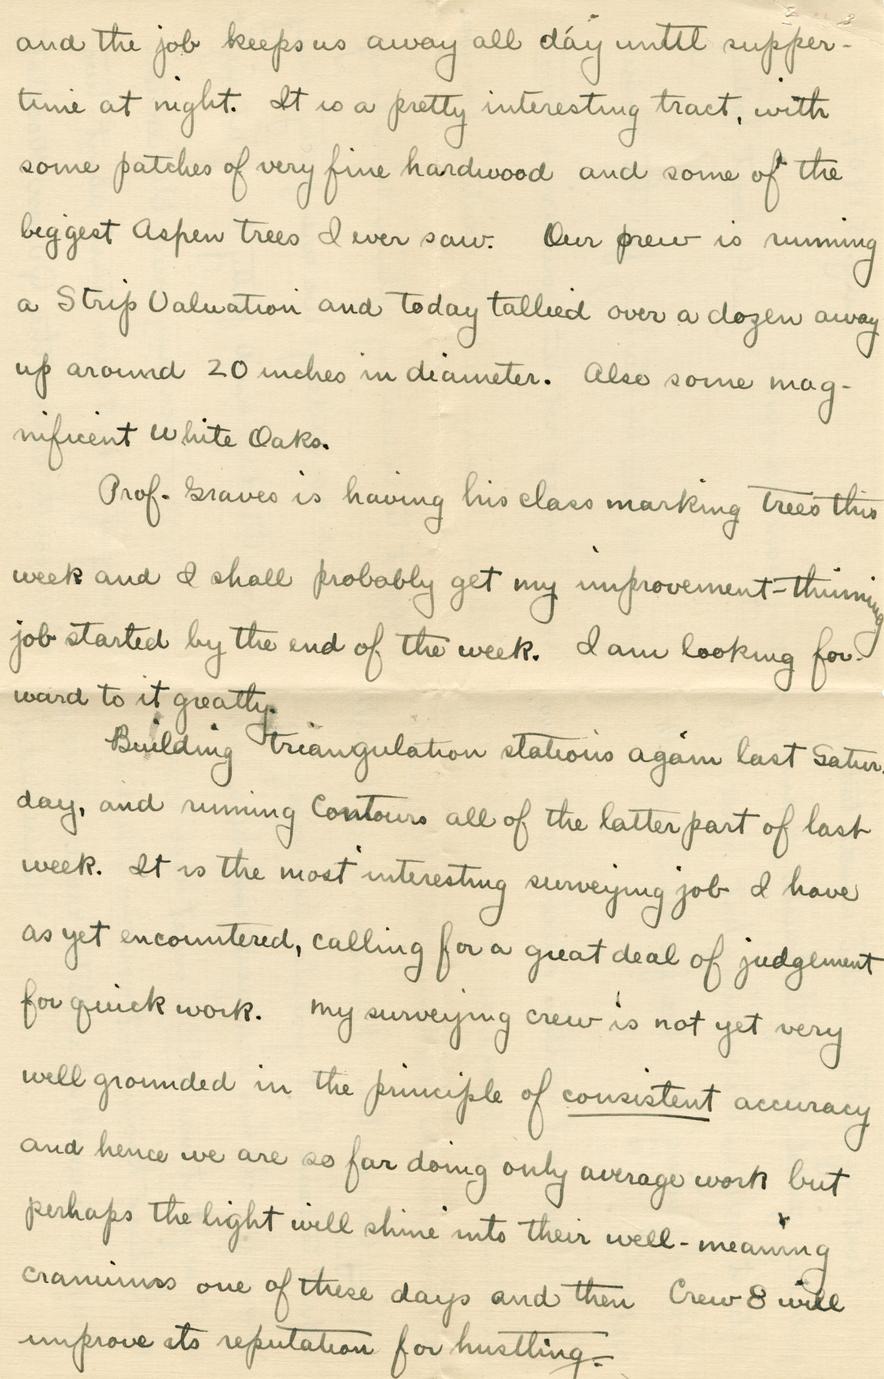 and the job keeps us away all day until supper-
time at night. It is a pretty interesting tract, with
some patches of very fine hardwood and some of the
biggest Aspen trees I ever saw. Our crew is running
a Strip Valuation and today tallied over a dozen away
up around 20 inches in diameter. Also some mag-
nificent White Oaks.
Prof. Graves is having his class marking trees this
week and I shall probably get my improvement-thinning
job started by the end of the week. I am looking for-
ward to it greatly.
Building triangulation stations again last Satur-
day, and running Contours all of the latter part of last
week. It is the most interesting surveying job I have
as yet encountered, calling for a great deal of judgement
for quick work. My surveying crew is not yet very
well grounded in the principle of consistent accuracy
and hence we are so far doing only average work but
perhaps the light will shine into their well-meaning
craniums one of these days and then Crew 8 will
improve its reputation for hustling.